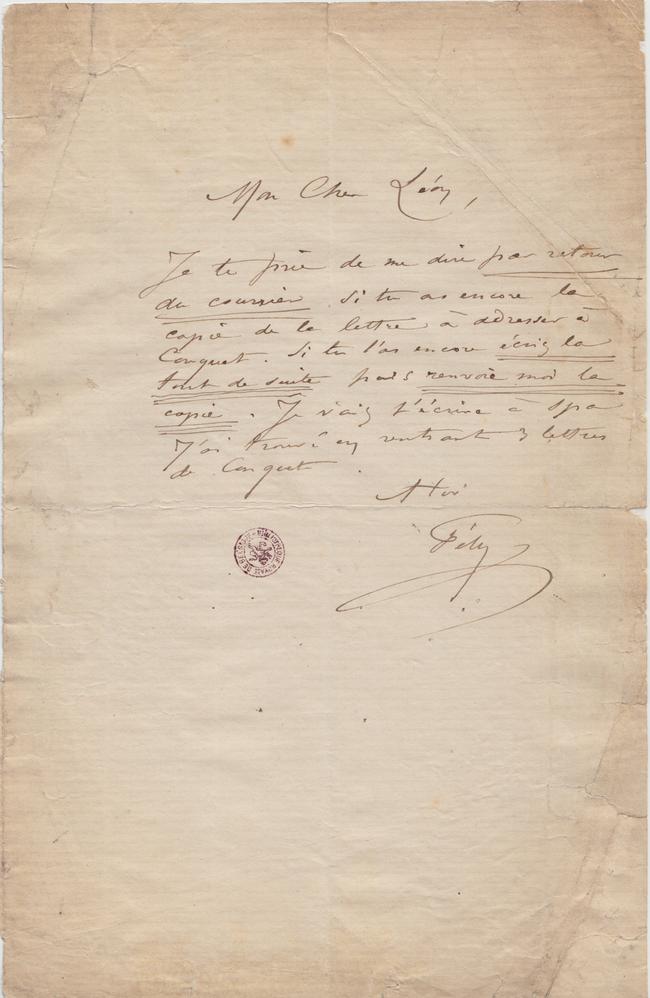 Mon Cher Léon,
Je te prie de me dire par retour
du courrier si tu as encore la
copie de la lettre à adresser à
Conquet. Si tu l'as encore écris la
tout de suite puis renvoie moi la
copie. Je vais t'écrire à Spa
J'ai trouvé en rentrant 3 lettres
de Conquet.
A toi
Fély
BIBLIOTHEQUE ROYALE DE BELGIQUE